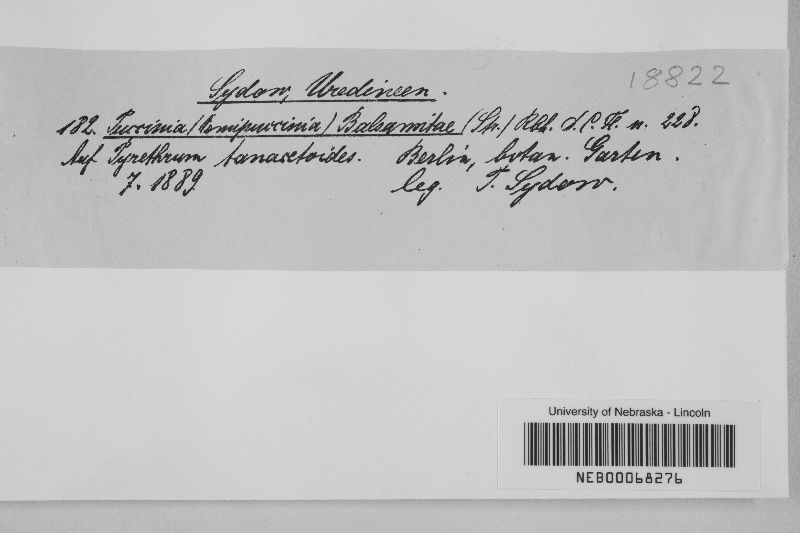 Sydow, Uredineen.
18822
182. Puccinia (Hemipuccinia) Balsamitae (Str.) Rbh. D. C. Fl. n. 228.
Auf Pyrethrum tanacetoides. Berlin, botan. Garten.
7. 1889 leg. P. Sydow.
University of Nebraska - Lincoln
NEB00068276